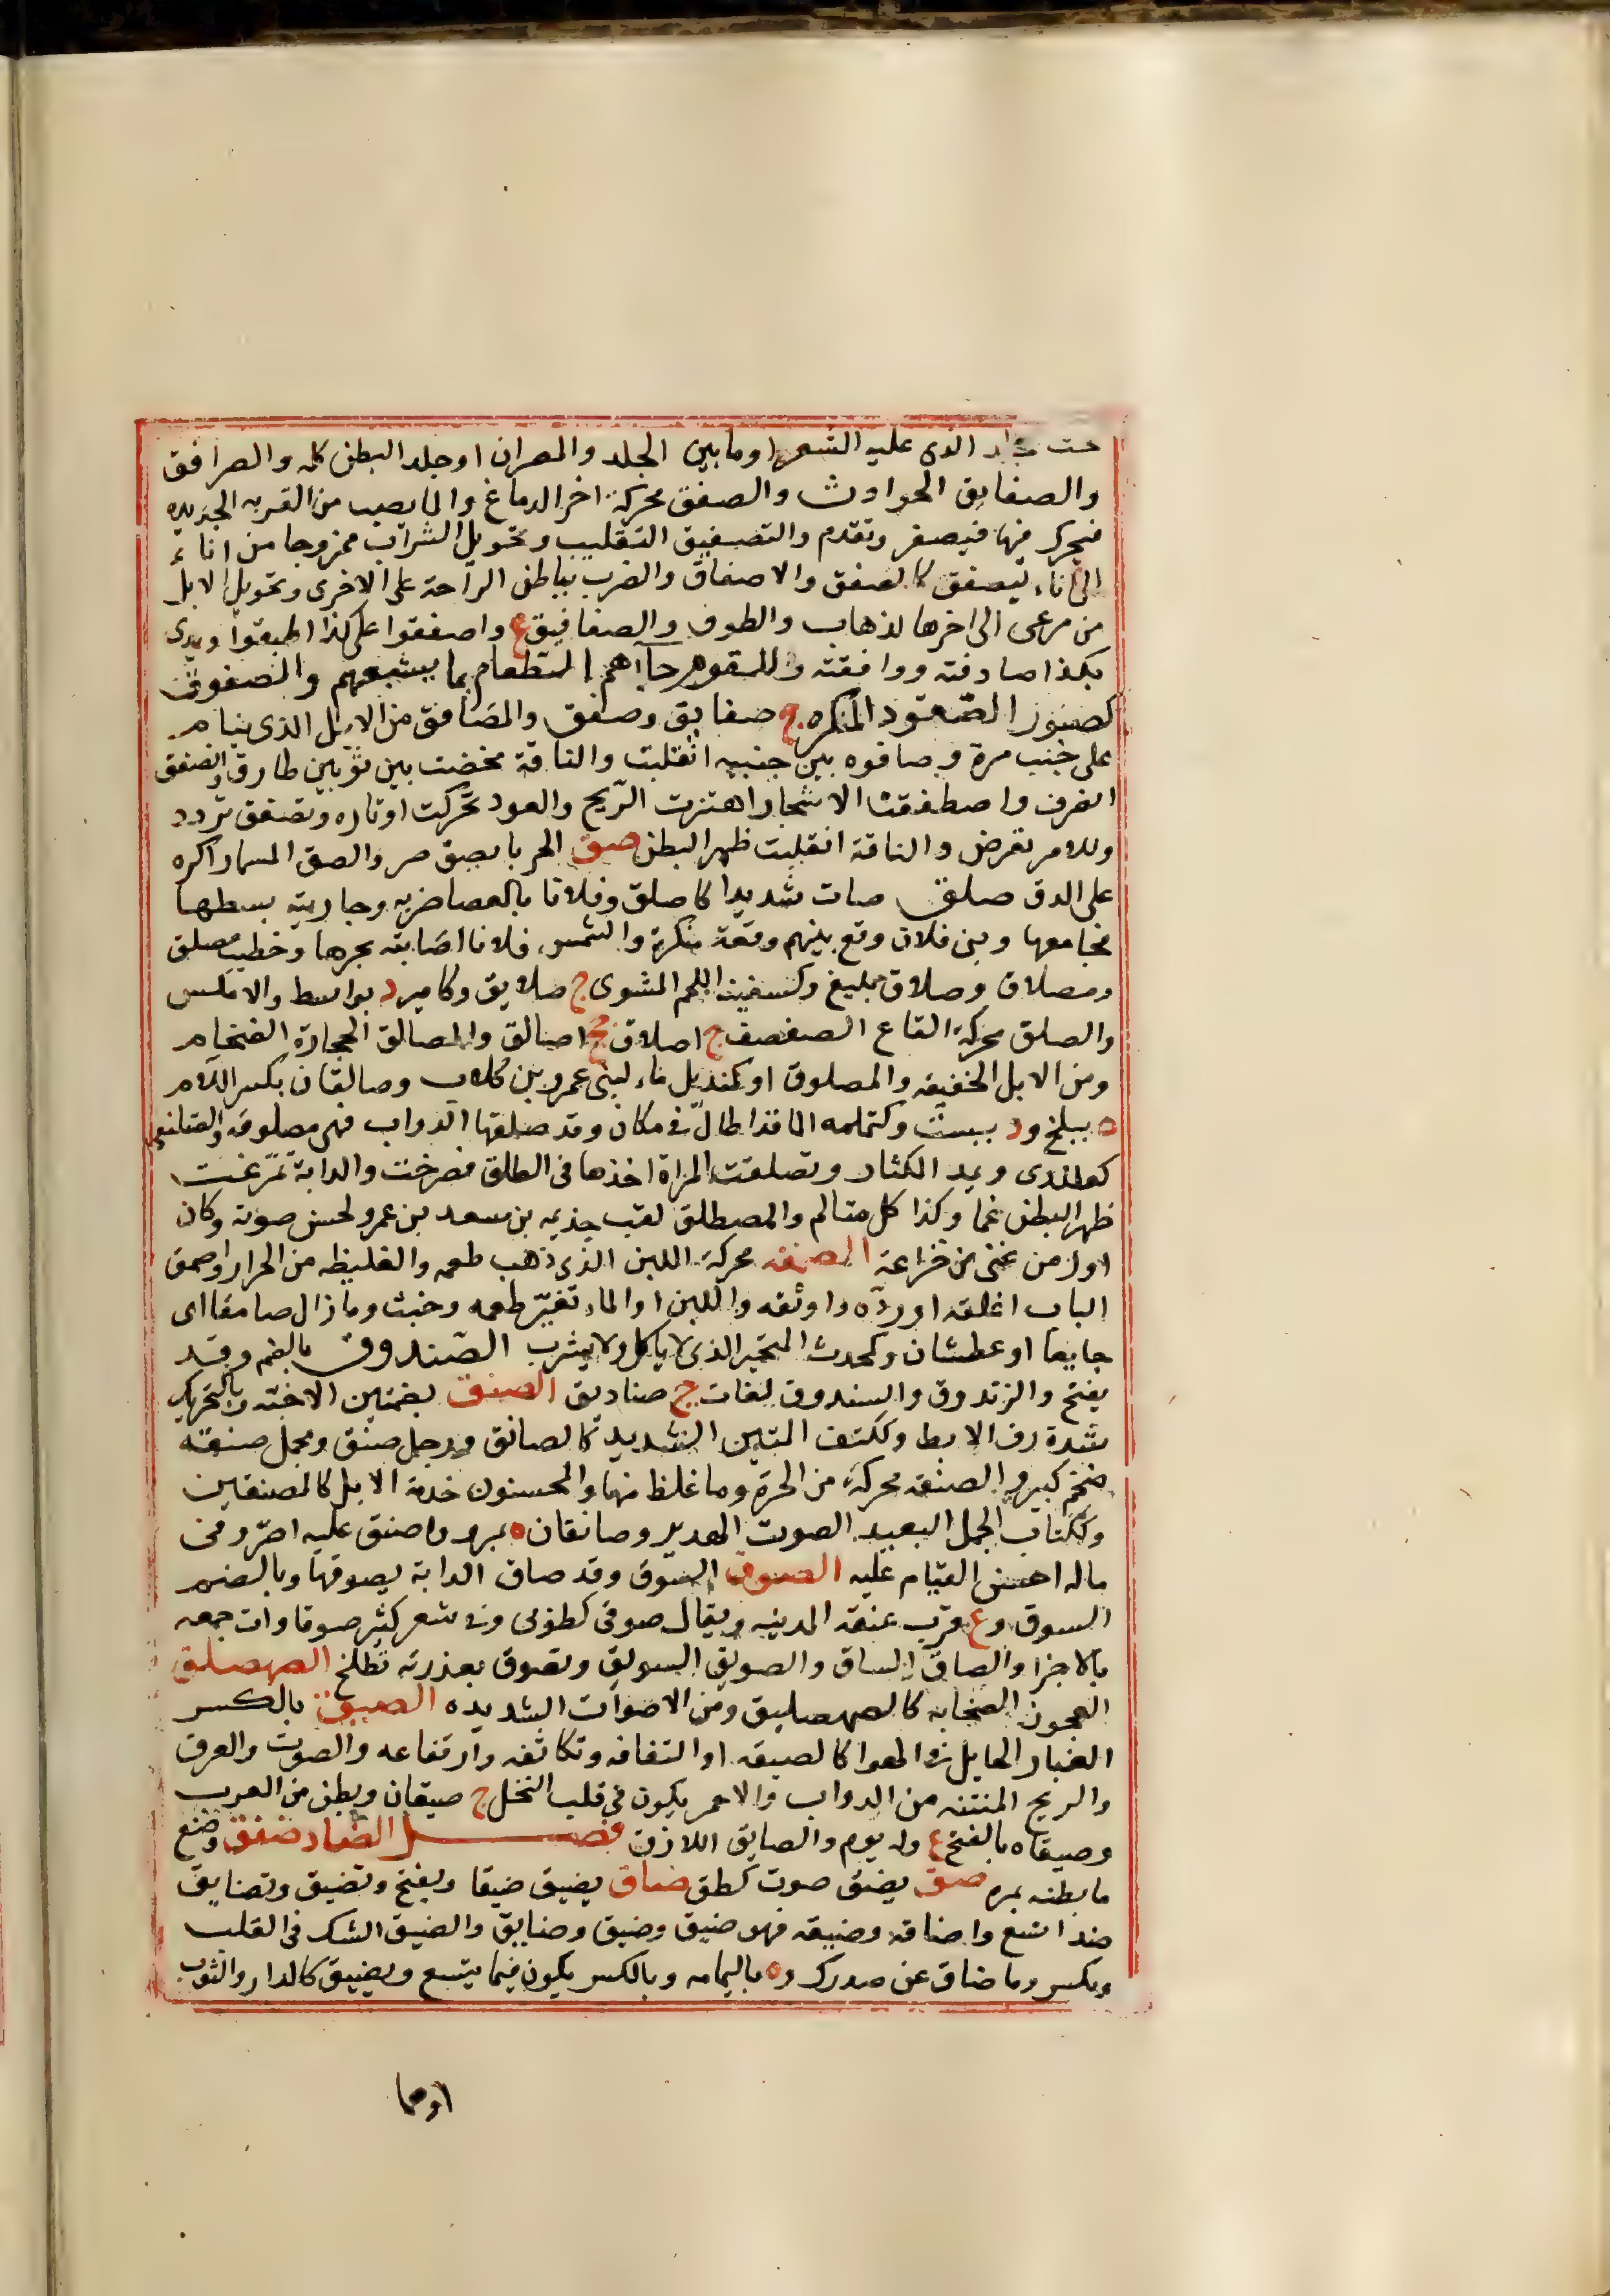 تحت الجلد الذى عليه الشعر او ما بين الجلد والمصران او جلد البطن كله والصرافق
والصفايق الحوادث والصفق محركة اخر الدماغ والما يصب من القربه الجديده
فيحرك فيها فيصفر وتقدم والتصفيق التقليب وتحويل الشراب ممزوجا من اناء
الى اناء ليصفق كالصفق والاصفاق والضرب بباطن الراحة على الاخرى وتحويل الابل
من مرعى الى اخرها لذهاب والطوف والصفافيق ع واصفقوا على كذا اطبقوا ويدى
بكذا صادفته ووافقته وللقوم جآاهم الطعام بما يشبعهم والصفوق
كصبور الصعود المنكره ج صفايق وصفق والمصافق من الابل الذى ينام
على جنب مرة وصافوه بين جنبيه انقلبت والناقة مخضت بين ثوبين طارق وانصفق
انصرف واصطفقت الاشجار اهتزت الريح والعود تحركت اوتاره وتصفق تردد
وللامر تعرض والناقة انقلبت ظهر البطن صق الحربا يصق صر والصق المسمار اكره
على الدق صلق صات شديدا كاصلق وفلانا بالعصا ضربه وجاريته بسطها
فجامعها وبنى فلان وقع بينهم وقعة منكرة والشمس فلانا اصابته بحرها وخطيب مصلق
ومصلاق وصلاق بليغ وكسفينه اللحم المشوى ج صلايق وكامير د بواسط والاملس
والصلق محركة القاع الصفصف ج اصلاق جج اصالق والمصالق الحجارة الضخام
ومن الابل الخفيفه والمصلوق او كمنديل ماء لبنى عمرو بن كلاب وصالقان بكسر اللام
ه ببلخ ود ببست وكتلمه الما قد اطال فى مكان وقد صلقها الدواب فهى مصلوقه والصلنقى
كعلندى ويمد الكثار وتصلقت المراة اخذها فى الطلق فصرخت والدابة تمرغت
ظهر البطن غما وكذا كل متالم والمصطلق لقب جذيمه بن سعد بن عمرو لحسن صوته وكان
اول من غنى من خزاعة الصمقه محركة اللبن الذى ذهب طعمه والغليظه من الحرار واصمق
الباب اغلقه او رده واوثقه واللبن او الماء تغير طعمه وخبث وما زال صامقا اى
جايعا او عطشان وكمحدث المتحير الذى لا ياكل ولا يشرب الصندوق بالضم وقد
يفتح والزندوق والسندوق لغات ج صناديق الصنق بضمتين الاخته وبالتحريك
شدة ذفر الابط وككتف المتين الشديد كالصانق ورجل صنق وجمل صنقه
ضخم كبير والصنقه محركة من الحرة وما غلظ منها والمحسنون خدمة الابل كالمصنقين
وككتاب الجمل البعيد الصوت الهدير وصانقان ه بمرو واصنق عليه اصر وفى
ماله احسن القيام عليه الصوق السوق وقد صاق الدابة يصوقها وبالضم
السوق وع قرب عنقه المدينه ويقال صوقى كطوبى وفى شعر كثير صوقاوات جمعه
بالاجزا والصاق الساق والصويق السويق وتصوق بعذرته تطلخ الصهصلق
العجوز الصخابه كالصهصليق ومن الاصوات الشديده الصيق بالكسر
الغبار الجايل فى الهوا كالصيقه او التفافه وتكاثفه وارتفاعه والصوت والعرق
والريح المنتنه من الدواب والاحمر يكون فى قلب النخل ج صيقان وبطن من العرب
وصيقاه بالفتح ع وله يوم والصايق اللازق فصل الضاد ضفق وضع
ما بطنه بمره ضق يضق صوت كطق ضاق يضيق ضيقا ويفتح وتضيق وتضايق
ضد اتسع واضاقه وضيقه فهو ضيق وضيق وضايق والضيق الشك فى القلب
ويكسر وما ضاق عن صدرك وه باليمامه وبالكسر يكون فيما يتسع ويضيق كالدار والثوب
اوهما